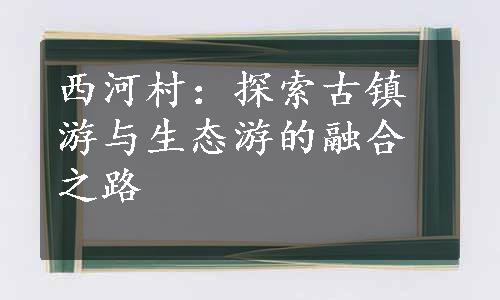 西河村：探索古镇
游与生态游的融合
之路